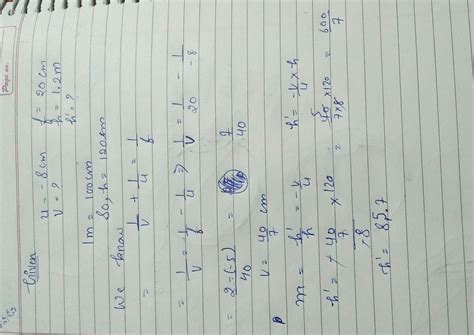 Page no.
Given
u = -8 cm f = 20 cm
v = ? h = 1.2 m
h' = ?
1m = 100cm
So, h = 120cm
We know
= 1/v + 1/u = 1/f
= 1/v = 1/f - 1/u => 1/v = 1/20 - 1/-8
= 2-(-5)/40 = 7/40
v = 40/7 cm
m = h'/h = -v/u h' = -v/u x h
h' = -40/7/-8 x 120 = 40/7x8 x120 = 600/7
h' = 85.7